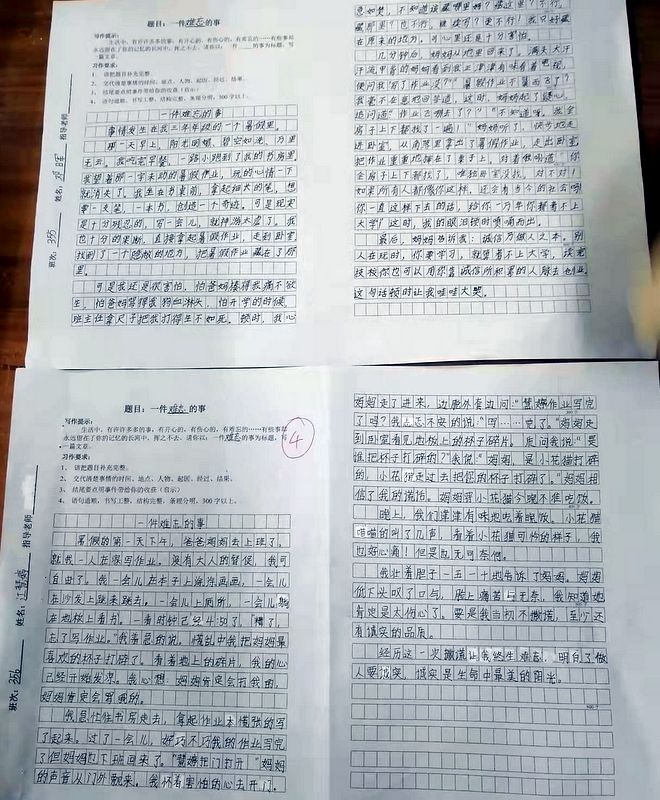 题目：一件难忘的事
写作提示：
生活中，有许许多多的事，有开心的，有伤心的，有难忘的……有些事却
永远留在了你的记忆的长河中，挥之不去。请你以：一件 的事为标题，写
一篇文章。
习作要求：
1、 请把题目补充完整。
2、 交代清楚事情的时间、地点、人物、起因、经过、结果。
3、 结尾要点明事件带给你的收获（启示）
4、 语句通顺，书写工整，结构完整，条理分明，300字以上。
班次：355 姓名：邓晖 指导老师
一件难忘的事
事情发生在我三年级的一个暑假里。
那一天早上，阳光明媚，碧空如洗，万里
无云。我吃完早餐，一路小跑到了我的书房里。
我望着那一字未动的暑假作业，玩的心情一下
就消失了。我坐在书桌前，拿起细大的笔，想
拿一支笔，一本书，创造一个奇迹。可是现实
是十分残忍的，写一会儿，就神游太虚了。我
也十分的果断，直接拿起暑假作业，走到卧室，
找到了一个隐秘的地方，把暑假作业藏在了那
里。
可是我还是很害怕，怕爸妈揍得我痛不欲
生，怕爸妈骂得我狗血淋头，怕开学的时候，
班主任拿尺子把我打得生不如死。顿时，我心
急如焚，不知道该藏哪里好？藏这里？不行，
藏那里？也不行，继续写？更不行！我只好藏
在原来的地方，可心里还是十分害怕。
几分钟后，妈妈从地里回来了。满头大汗
汗流甲背的妈妈看到我正津津有味看着电视，
便问我：写了作业没？“暑假作业不翼而飞了？
我毫不在意地回答道，这时，妈妈起了疑心，
追问道“作业飞哪去了？”“不知道呀，我全
房子上下都找了一遍！”妈妈听了，快步地走
进卧室，从角落里拿出了暑假作业，走出卧室
把作业重重地摔在了桌子上，对着我吼道“你
全房子上下都找了，唯独卧室没找，对不对？！
如果所有人都像你这样，还会有当今的社会吗
你一直这样下去的话，给你一万年你都考不上
大学！”这时，我的眼泪顿时喷涌而出。
最后，妈妈告诉我：诚信为做人之本。别
人在玩时，你要学习，就算考不上大学，读完
技校你也可以用你靠诚信所积累的人脉去创业。
这句话顿时让我哇哇大哭。
题目：一件难忘的事
写作提示：
生活中，有许许多多的事，有开心的，有伤心的，有难忘的……有些事却
永远留在了你的记忆的长河中，挥之不去。请你以：一件难忘的事为标题，写
一篇文章。
4
习作要求：
1、 请把题目补充完整。
2、 交代清楚事情的时间、地点、人物、起因、经过、结果。
3、 结尾要点明事件带给你的收获（启示）
4、 语句通顺，书写工整，结构完整，条理分明，300字以上。
班次：356 姓名：江慧婷 指导老师
一件难忘的事
暑假的第一天下午，爸爸妈妈去上班了，
就我一人在家写作业。没有大人的督促，我可
自由了。我一会儿在本子上海海画画，一会儿
在沙发上跳来跳去。一会儿上厕所，一会儿趴
在地板上看书。一看时钟已经4:50了。“糟了，
忘了写作业。”我着急的说，慌乱中我把妈妈最
喜欢的杯子打碎了。看着地上的碎片，我的心
已经开始发凉。我心想：妈妈肯定会打我的，
妈妈肯定会骂我的。
我急忙往书房走去，拿起作业本慌张的写
了起来。过了一会儿，好巧不巧我的作业写完
了但妈妈也下班回来了。“慧婷把门打开，”妈妈
的声音从门外飘来。我怀着害怕的心去开门。
妈妈走了进来，边脱外套边问：“慧婷作业写完
了吗？我忐忑不安的说：“写……完了。”妈妈走
到卧室看见地板上的杯子碎片。质问我说：“是
谁把杯子打碎的？”我说：“妈妈，是小花猫打碎
的，小花猫走过去把您的杯子打碎了。”妈妈相
信了我的谎话。妈妈罚小花猫今晚不准吃饭。
晚上，我们津津有味地吃着晚饭。小花猫
喵喵的叫了几声，看着小花猫可怜的样子，我
也好心痛！但是也无可奈何。
我壮着胆子一五一十地告诉了妈妈。妈妈
低下头叹了口气，脸上痛苦与无奈。我知道她
肯定是太伤心了。要是我当初不撒谎，至少还
有诚实的品质。
经历这一次撒谎让我终生难忘，明白了做
人要诚实，诚实是生命中最美的阳光。